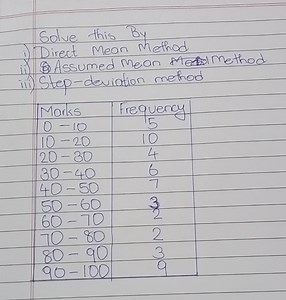 Solve this By
i) Direct Mean Method
ii) Assumed mean method
iii) Step-deviation method
Marks Frequency
0-10 5
10-20 10
20-30 4
30-40 6
40-50 7
50-60 3
60-70 2
70-80 2
80-90 3
90-100 9